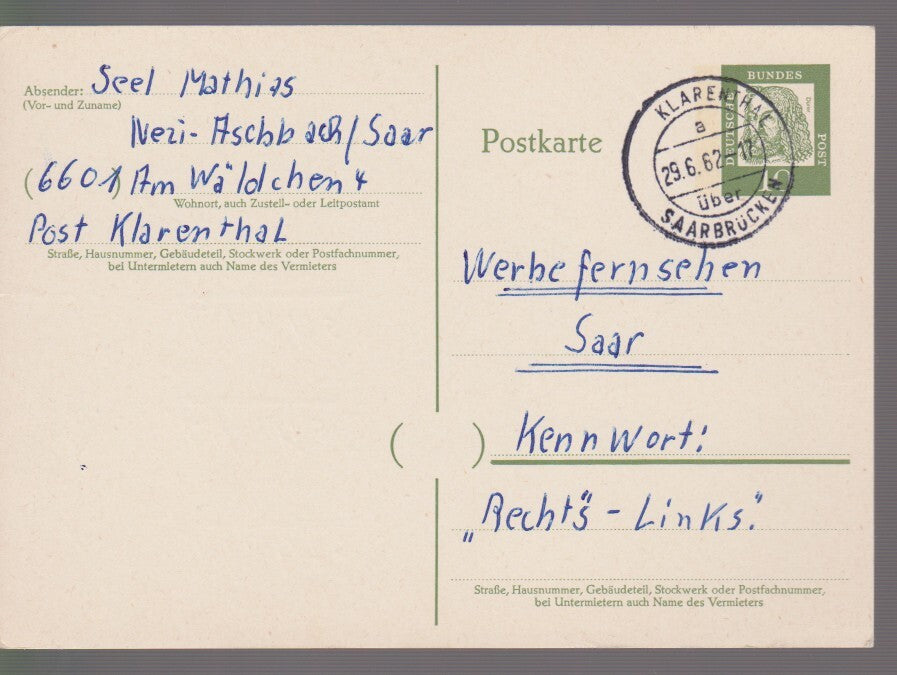 Absender: Seel Mathias
(Vor- und Zuname)
Nezi-Aschbach/Saar
(6601) Am Wäldchen 4
Wohnort, auch Zustell- oder Leitpostamt
Post Klarenthal
Straße, Hausnummer, Gebäudeteil, Stockwerk oder Postfachnummer,
bei Untermietern auch Name des Vermieters
Postkarte
DEUTSCHE
BUNDES
POST
Dürer
10
KLARENTHAL
a
29.6.62-17
über
SAARBRÜCKEN
Werbefernsehen
Saar
( ) Kennwort:
„Rechts - Links."
Straße, Hausnummer, Gebäudeteil, Stockwerk oder Postfachnummer,
bei Untermietern auch Name des Vermieters